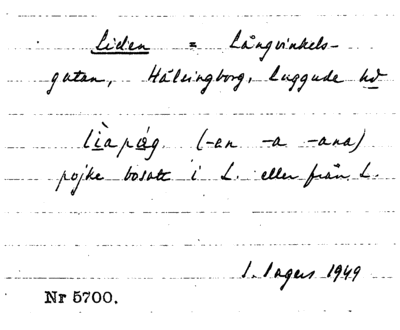 Liden = Långvinkels-
gatan, Hälsingborg, Luggude hd
lìapåg (-en -a -ana)
pojke bosatt i L. eller från L.
I. Ingers 1949
Nr 5700.